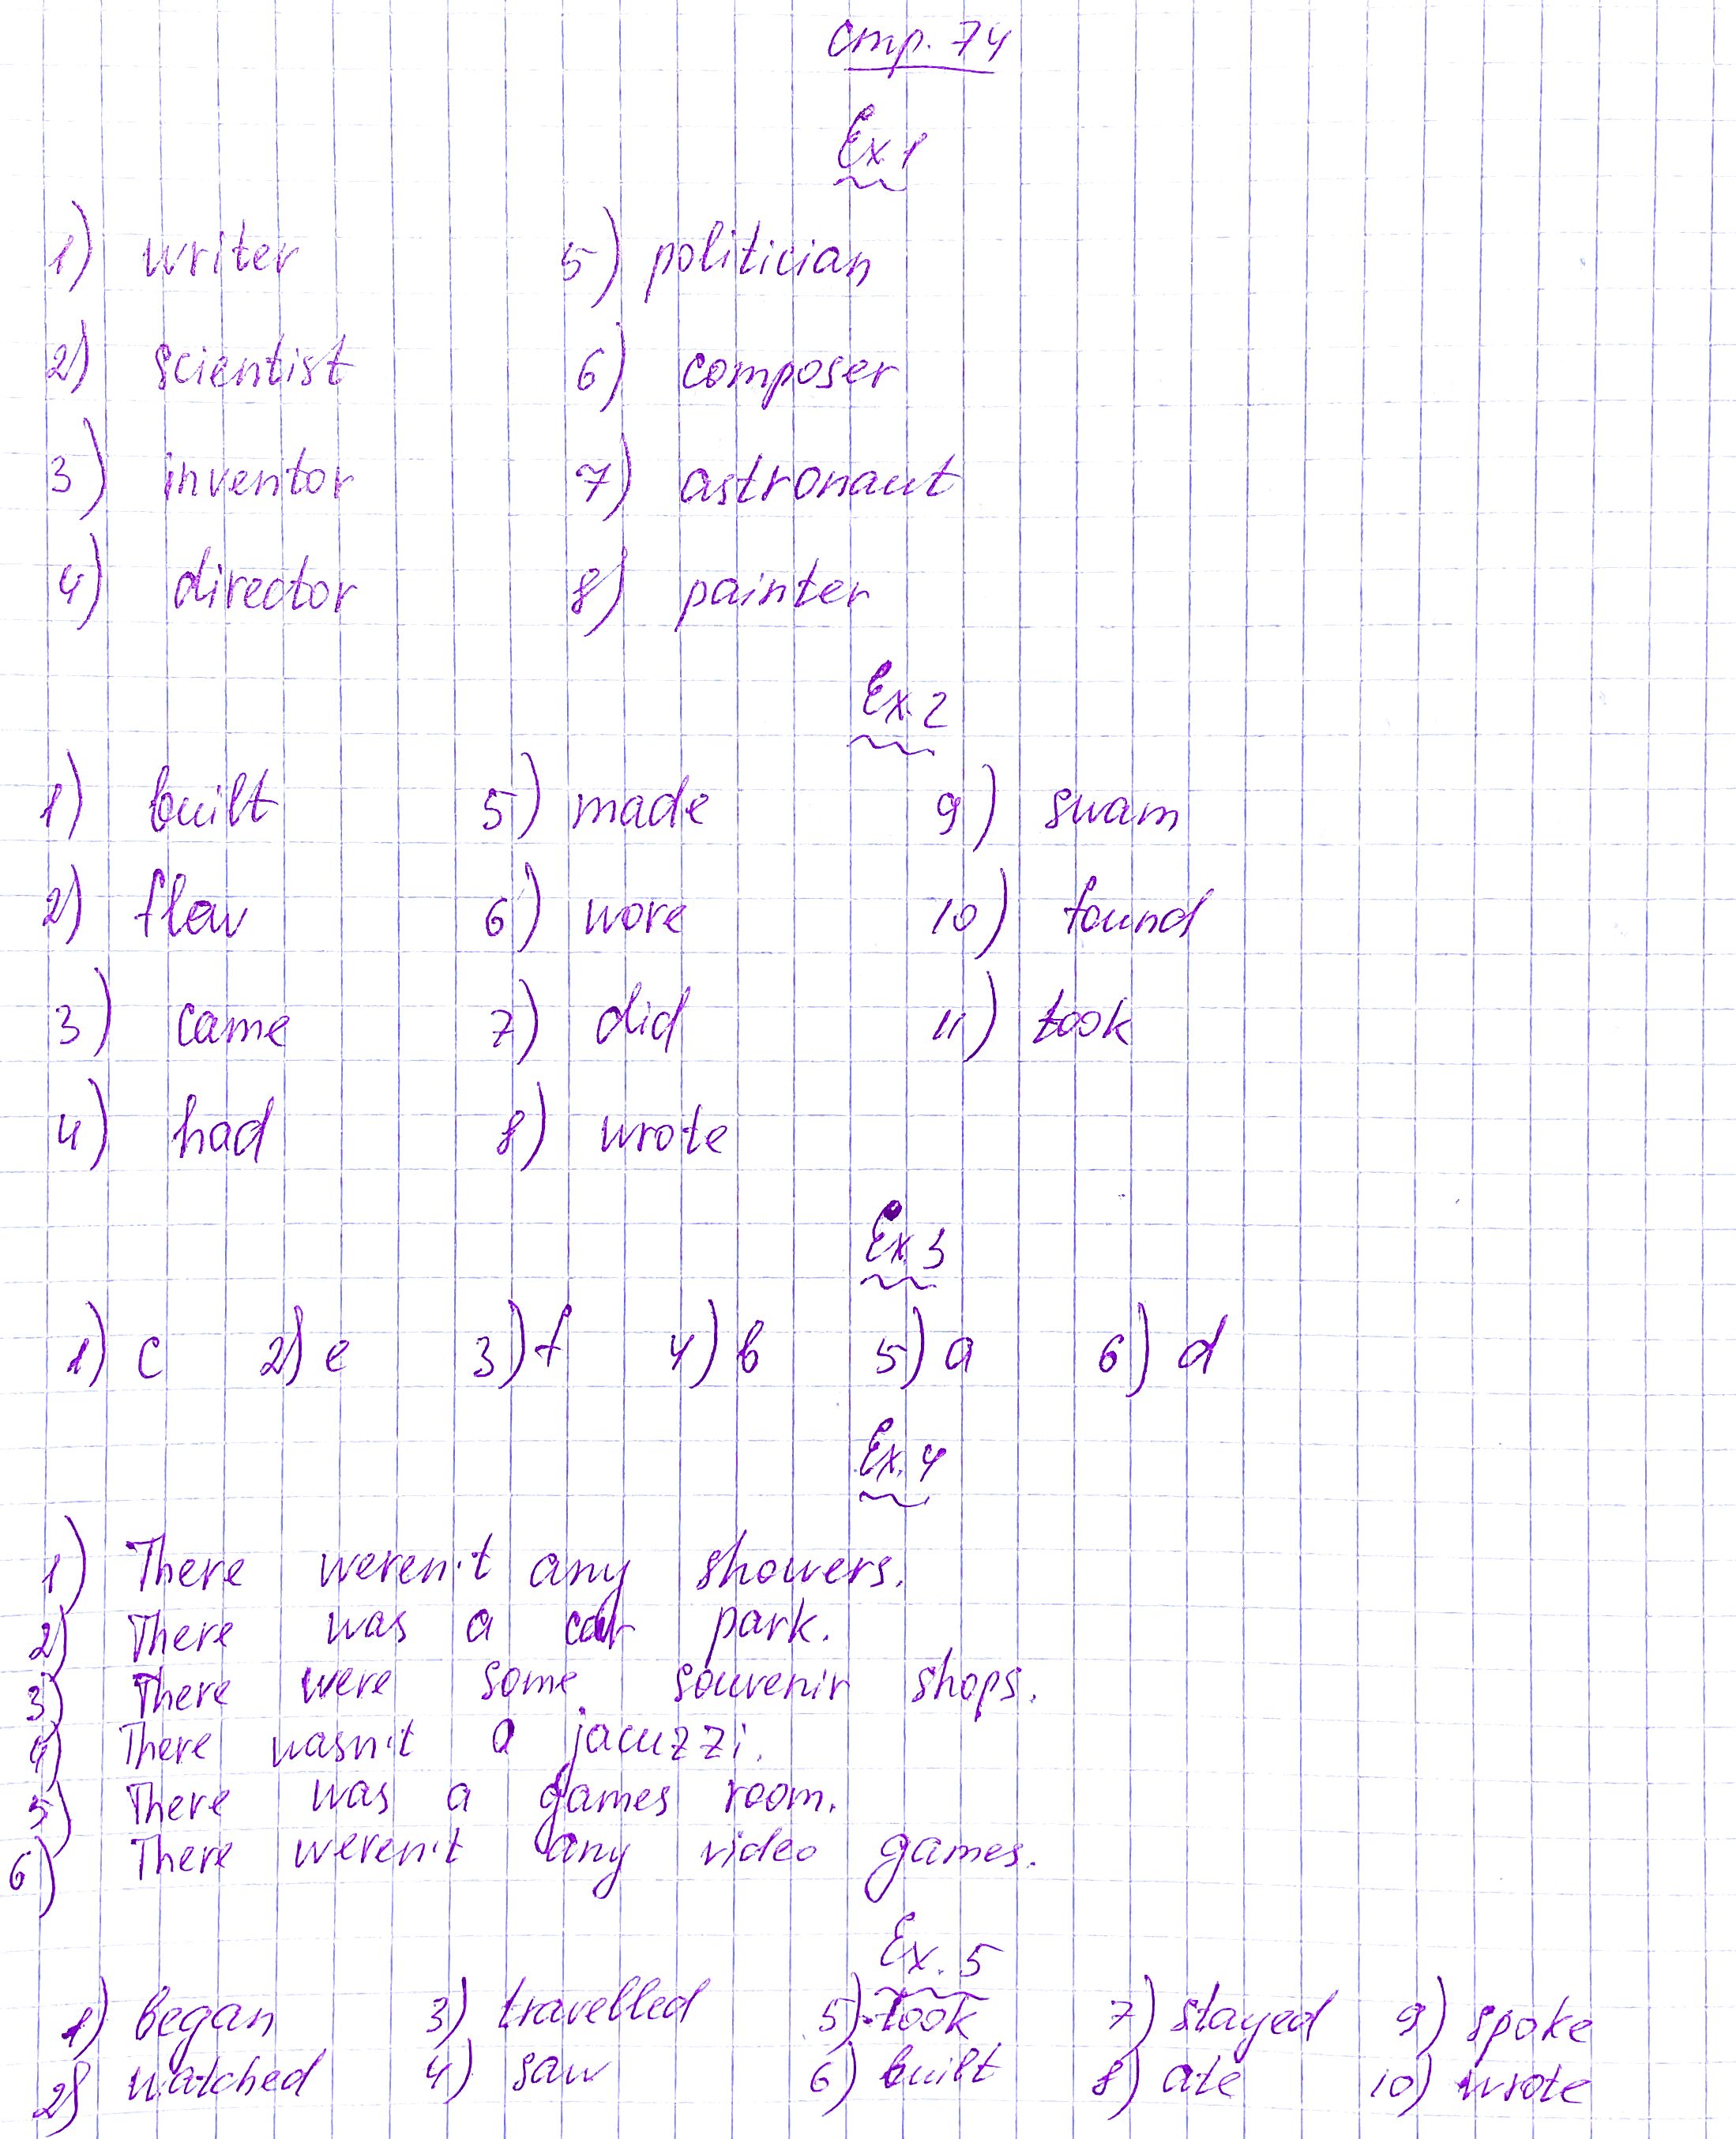 стр. 74
Ex 1
1) writer 5) politician
2) scientist 6) composer
3) inventor 7) astronaut
4) director 8) painter
Ex. 2
1) built 5) made 9) swam
2) flew 6) wore 10) found
3) came 7) did 11) took
4) had 8) wrote
Ex. 3
1) c 2) e 3) f 4) b 5) a 6) d
Ex. 4
1) There weren't any showers.
2) There was a car park.
3) There were some souvenir shops.
4) There wasn't a jacuzzi.
5) There was a games room.
6) There weren't any video games.
Ex. 5
1) began 3) travelled 5) took 7) stayed 9) spoke
2) watched 4) saw 6) built 8) ate 10) wrote